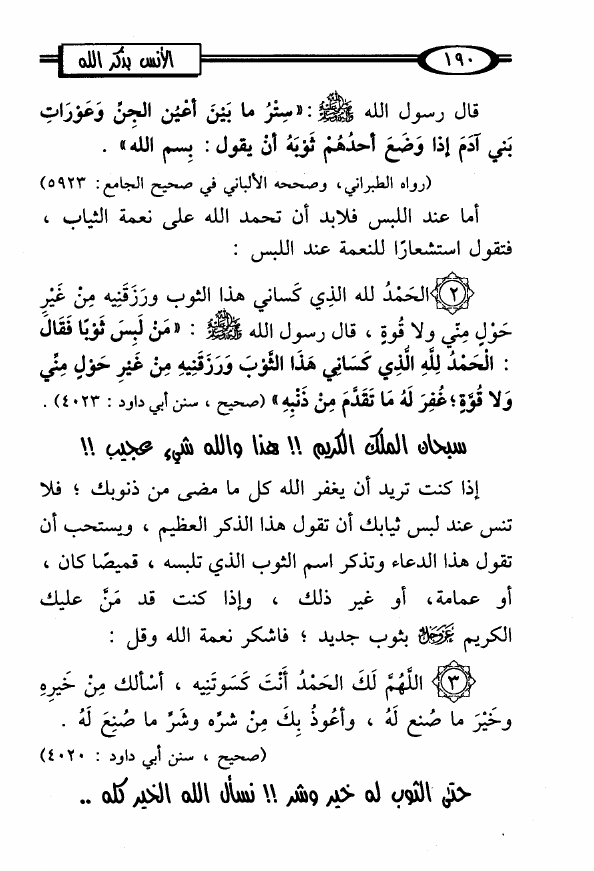 ١٩٠
الأنس بذكر الله
قال رسول الله ﷺ : «سِتْرُ ما بَيْنَ أَعْيُنِ الجِنِّ وَعَوْرَاتِ
بَني آدَمَ إذا وَضَعَ أحدُهُمْ ثَوْبَهُ أَنْ يقول : بِسم الله» .
(رواه الطبراني، وصححه الألباني في صحيح الجامع: ٥٩٢٣)
أما عند اللبس فلابد أن تحمد الله على نعمة الثياب ،
فتقول استشعارًا للنعمة عند اللبس :
٢ الحَمْدُ لله الذِي كَساني هذا الثوب ورَزَقَنِيه مِنْ غَيْرِ
حَوْلٍ مِنِّي ولا قُوةٍ ، قال رسول الله ﷺ : «مَنْ لَبِسَ ثَوْبًا فَقَالَ
: الْحَمْدُ لِلَّهِ الَّذِي كَسَانِي هَذَا الثَّوْبَ وَرَزَقَنِيهِ مِنْ غَيْرِ حَوْلٍ مِنِّي
وَلا قُوَّةٍ؛ غُفِرَ لَهُ مَا تَقَدَّمَ مِنْ ذَنْبِهِ» (صحيح ، سنن أبي داود : ٤٠٢٣) .
سبحان الملك الكريم !! هذا والله شيء عجيب !!
إذا كنت تريد أن يغفر الله كل ما مضى من ذنوبك ؛ فلا
تنس عند لبس ثيابك أن تقول هذا الذكر العظيم ، ويستحب أن
تقول هذا الدعاء وتذكر اسم الثوب الذي تلبسه ، قميصًا كان ،
أو عمامة، أو غير ذلك ، وإذا كنت قد مَنَّ عليك
الكريم عَزَّوَجَلَّ بثوب جديد ؛ فاشكر نعمة الله وقل :
٣ اللَّهُمَّ لَكَ الحَمْدُ أَنْتَ كَسَوتَنِيه ، أسْألك مِنْ خَيرِهِ
وخَيْرَ ما صُنع لَهُ ، وأعوذُ بِكَ مِنْ شرِّه وشَرِّ ما صُنِعَ لَهُ .
(صحيح ، سنن أبي داود : ٤٠٢٠)
حتى الثوب له خير وشر !! نسأل الله الخير كله ..